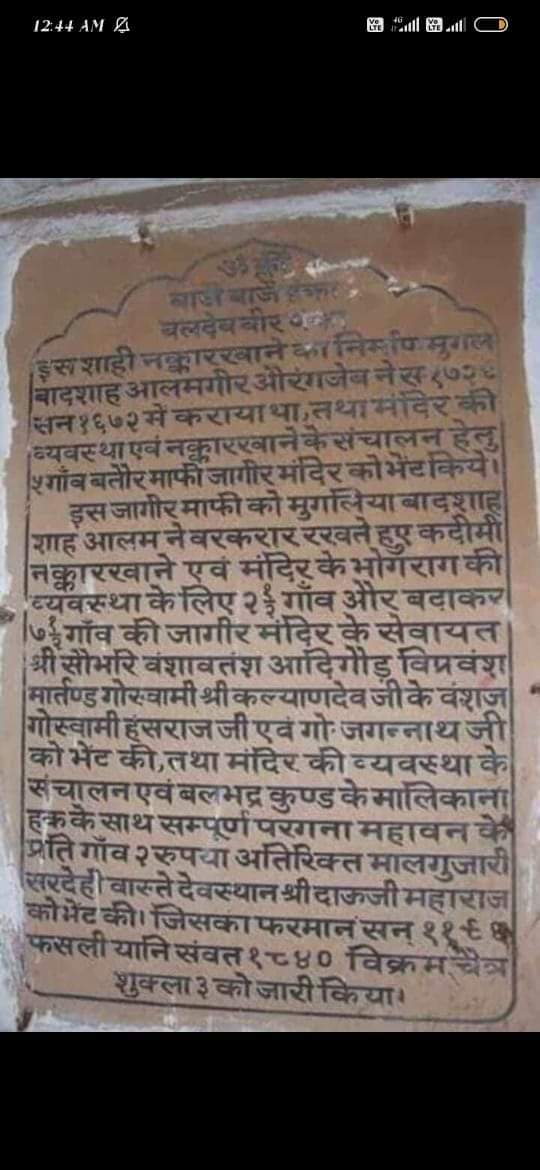 12:44 AM
4G
Vo
LTE
Vo
LTE
ॐ
बाजे बाजे
बलदेव वीर
इस शाही नक्कारखाने का निर्माण मुगल
बादशाह आलमगीर औरंगजेब ने स १७२९
सन १६७२ में कराया था, तथा मंदिर की
व्यवस्था एवं नक्कारखाने के संचालन हेतु
५ गाँव बतौर माफी जागीर मंदिर को भेंट किये।
इस जागीर माफी को मुगलिया बादशाह
शाह आलम ने वरकरार रखते हुए कदीमी
नक्कारखाने एवं मंदिर के भोगराग की
व्यवस्था के लिए २½ गाँव और बढाकर
७½ गाँव की जागीर मंदिर के सेवायत
श्री सौभरि वंशावतंश आदिगौड़ विप्रवंश
मार्तण्ड गोस्वामी श्री कल्याणदेव जी के वंशज
गोस्वामी हंसराज जी एवं गो॰ जगन्नाथ जी
को भेंट की, तथा मंदिर की व्यवस्था के
संचालन एवं बलभद्र कुण्ड के मालिकाना
हक के साथ सम्पूर्ण परगना महावन के
प्रति गाँव २ रुपया अतिरिक्त मालगुजारी
सरदेही वास्ते देवस्थान श्री दाऊजी महाराज
को भेंट की। जिसका फरमान सन्
फसली यानि संवत १८४० विक्रम चैत्र
शुक्ला ३ को जारी किया।